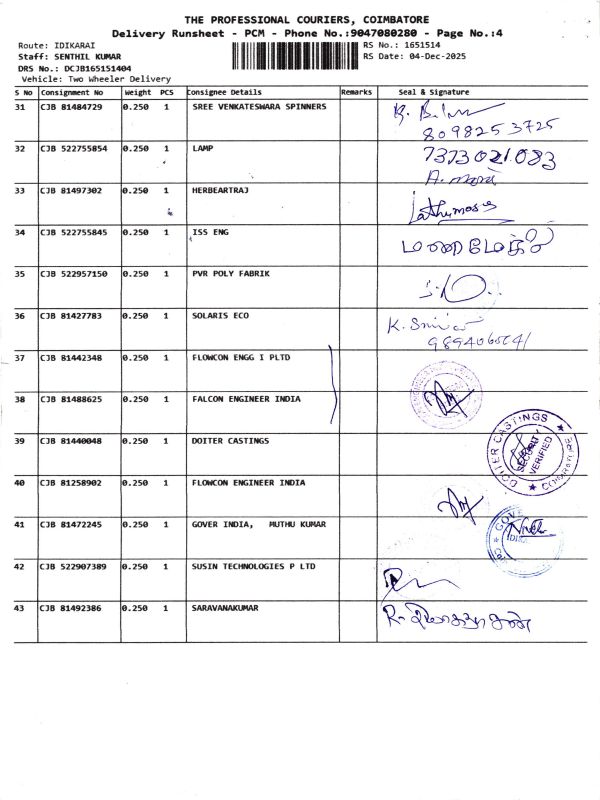 THE PROFESSIONAL COURIERS, COIMBATORE
Delivery Runsheet - PCM - Phone No.:9047080280 - Page No.:4
Route: IDIKARAI RS No.: 1651514
Staff: SENTHIL KUMAR RS Date: 04-Dec-2025
DRS No.: DCJB165151404
Vehicle: Two Wheeler Delivery
S No Consignment No Weight PCS Consignee Details Remarks Seal & Signature
31 CJB 81484729 0.250 1 SREE VENKATESWARA SPINNERS
8098253725
32 CJB 522755854 0.250 1 LAMP 7373021083
33 CJB 81497302 0.250 1 HERBEARTRAJ
34 CJB 522755845 0.250 1 ISS ENG
35 CJB 522957150 0.250 1 PVR POLY FABRIK
36 CJB 81427783 0.250 1 SOLARIS ECO
37 CJB 81442348 0.250 1 FLOWCON ENGG I PLTD
38 CJB 81488625 0.250 1 FALCON ENGINEER INDIA
39 CJB 81440048 0.250 1 DOITER CASTINGS DOITER CASTINGS
SECURITY
VERIFIED
COIMBATORE
40 CJB 81258902 0.250 1 FLOWCON ENGINEER INDIA
41 CJB 81472245 0.250 1 GOVER INDIA, MUTHU KUMAR
42 CJB 522907389 0.250 1 SUSIN TECHNOLOGIES P LTD
43 CJB 81492386 0.250 1 SARAVANAKUMAR